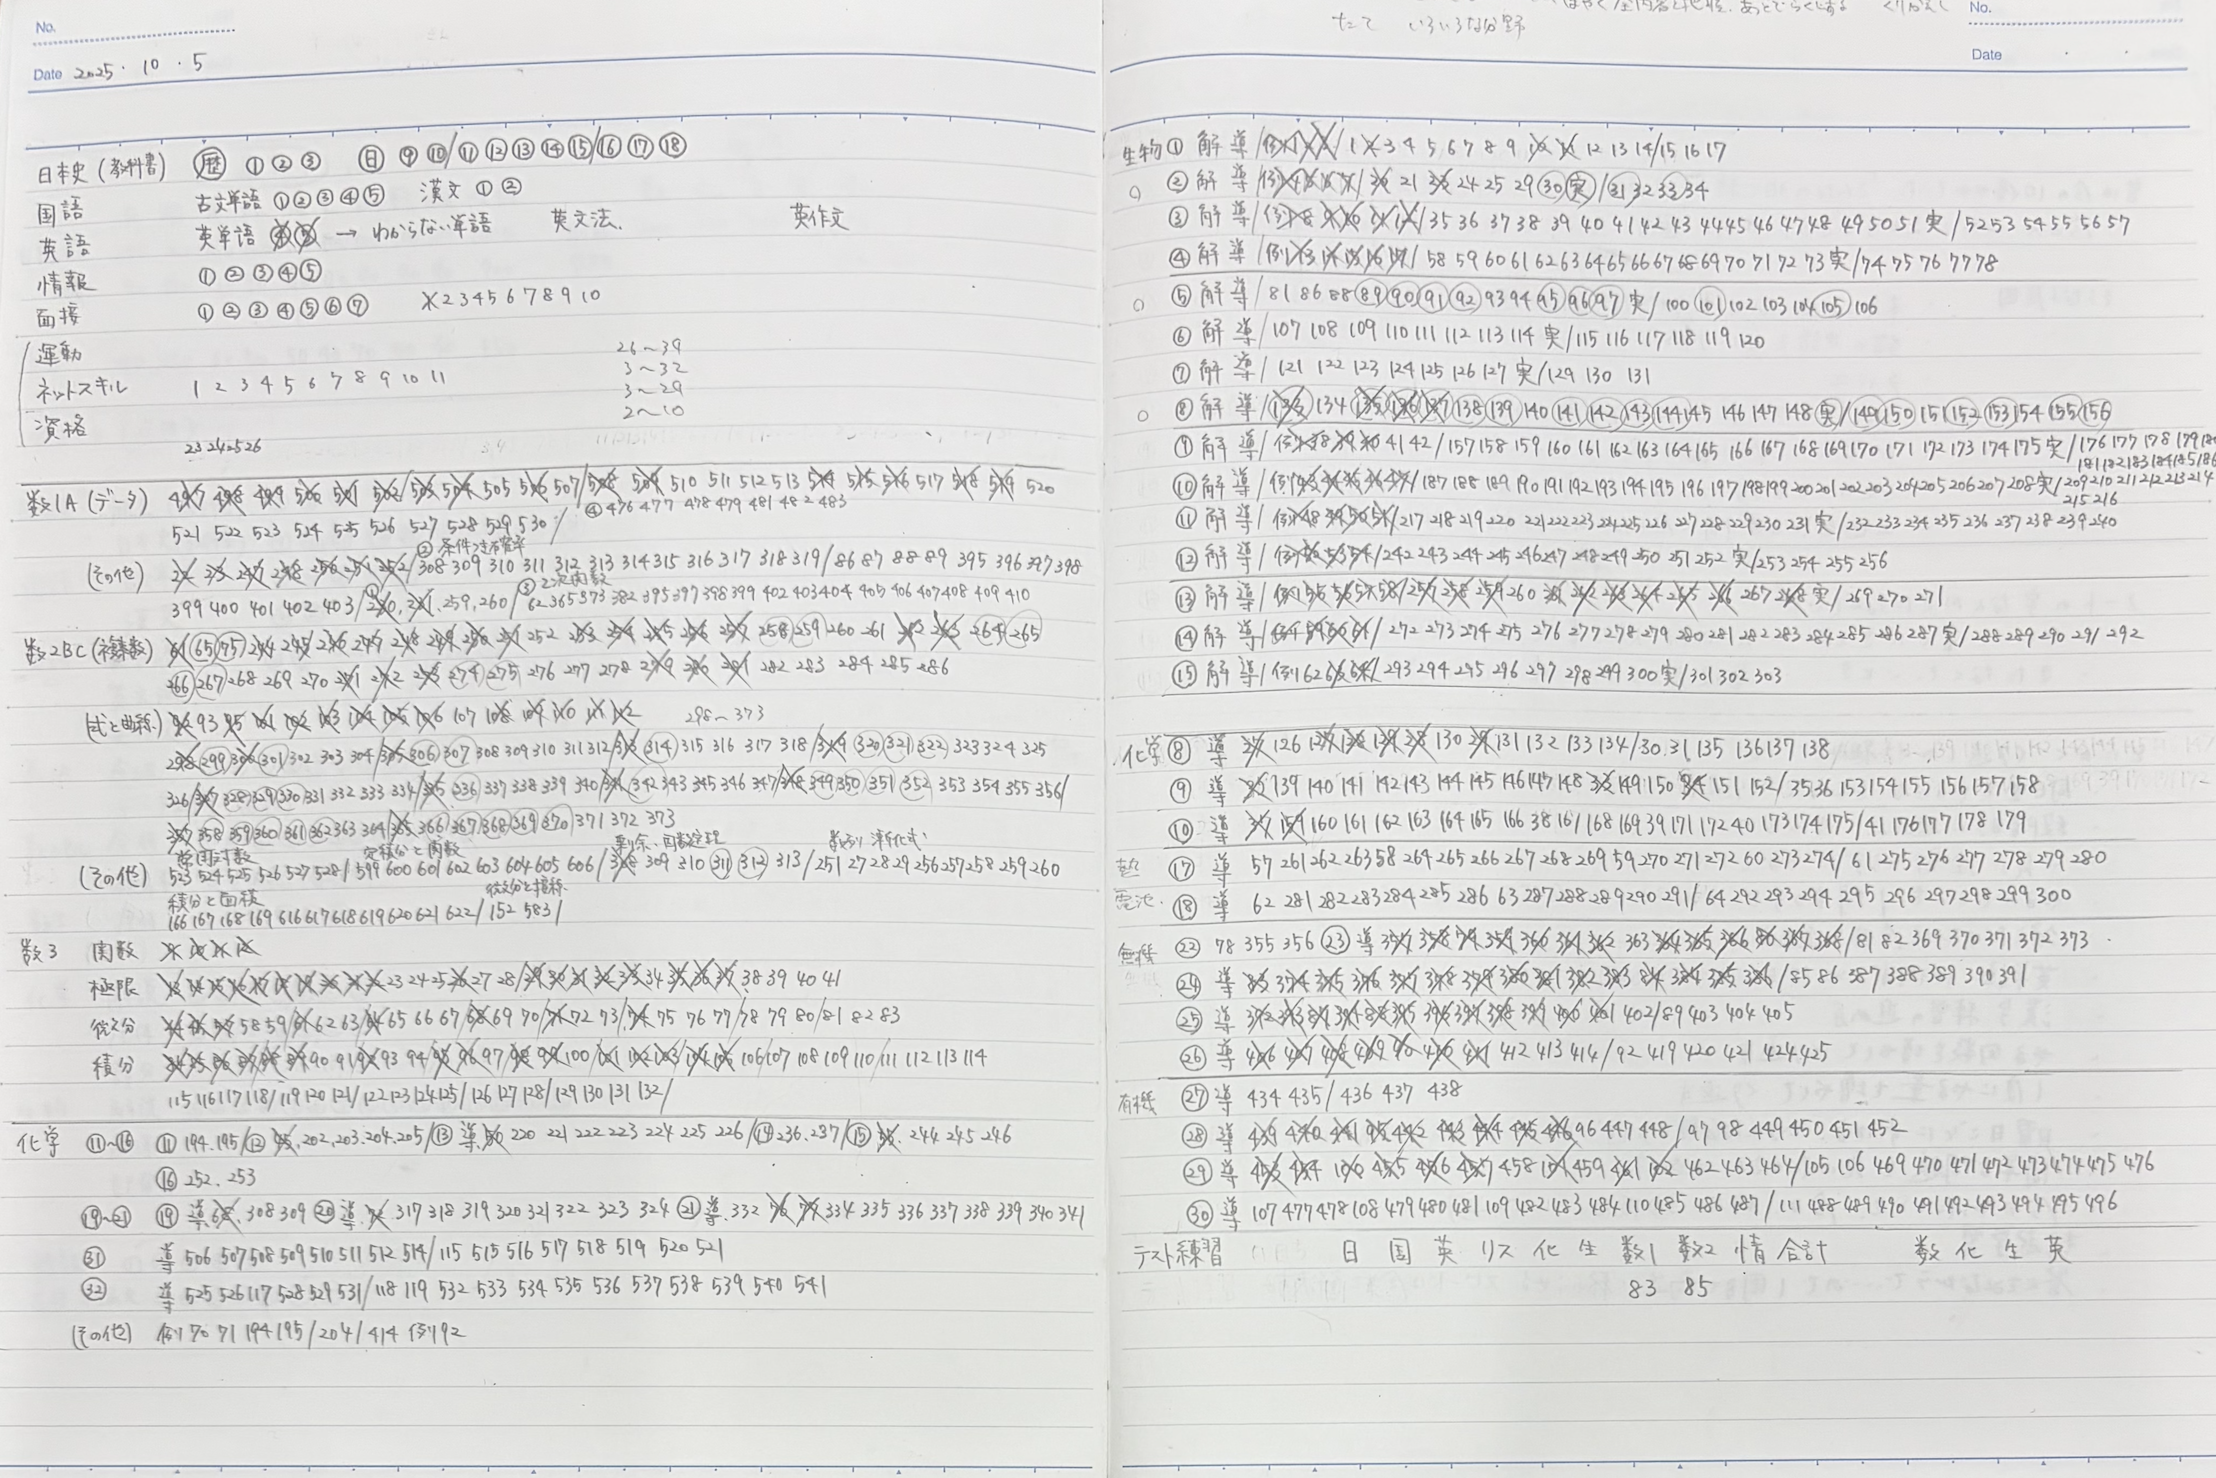 No.
Date 2025・10・5
日本史(教科書) ㊭ ① ② ③ ㊐ ⑨ ⑩/⑪ ⑫ ⑬ ⑭ ⑮/⑯ ⑰ ⑱
国語 古文単語 ① ② ③ ④ ⑤ 漢文 ① ②
英語 英単語 → わからない単語 英文法. 英作文
情報 ① ② ③ ④ ⑤
面接 ① ② ③ ④ ⑤ ⑥ ⑦ 2 3 4 5 6 7 8 9 10
運動 26〜39
3〜32
ネットスキル 1 2 3 4 5 6 7 8 9 10 11 3〜29
資格 2〜10
23 24 25 26
数1A (データ) 497 498 499 500 501 502/503 504 505 506 507/508 509 510 511 512 513 514 515 516 517 518 519 520
④ 476 477 478 479 481 482 483
521 522 523 524 525 526 527 528 529 530/
② 条件つき確率
(その他) 308 309 310 311 312 313 314 315 316 317 318 319/86 87 88 89 395 396 397 398
③ 2次関数
399 400 401 402 403/ 259, 260/62 365 373 382 395 397 398 399 402 403 404 405 406 407 408 409 410
数2BC (複素数) 61 65 75 244 245 246 247 248 249 250 251 252 253 254 255 256 257 258 259 260 261 262 263 264 265
266 267 268 269 270 271 272 273 274 275 276 277 278 279 280 281 282 283 284 285 286
(式と曲線) 92 93 95 101 102 103 104 105 106 107 108 109 110 111 112 298〜373
298 299 300 301 302 303 304/305 306 307 308 309 310 311 312/313 314 315 316 317 318/319 320 321 322 323 324 325
326/327 328 329 330 331 332 333 334/335 336 337 338 339 340/341 342 343 345 346 347/348 349 350 351 352 353 354 355 356/
357 358 359 360 361 362 363 364 365 366 367 368 369 370 371 372 373
常用対数 定積分と関数 剰余・因数定理 数列 漸化式
(その他) 523 524 525 526 527 528/599 600 601 602 603 604 605 606/308 309 310 311 312 313/251 27 28 29 256 257 258 259 260
積分と面積 微分と接線
166 167 168 169 616 617 618 619 620 621 622/152 583/
数3 関数 9 10 11 12
極限 13 14 15 16 17 18 19 20 21 22 23 24 25 26 27 28/29 30 31 32 33 34 35 36 37 38 39 40 41
微分 58 59 61 62 63/64 65 66 67/68 69 70/71 72 73/74 75 76 77/78 79 80/81 82 83
積分 84 85 86 87 88 89 90 91 92 93 94 95 96 97 98 99 100/101 102 103/104 105 106/107 108 109 110/111 112 113 114
115 116 117 118/119 120 121/122 123 124 125/126 127 128/129 130 131 132/
化学 ⑪〜⑯ ⑪ 194. 195/⑫ 45. 202. 203. 204. 205/⑬ 導. 50 220 221 222 223 224 225 226/⑭ 236. 237/⑮ 244 245 246
⑯ 252. 253
⑲〜㉑ ⑲ 導. 68. 308 309 ⑳ 導. 317 318 319 320 321 322 323 324 ㉑ 導. 332 76 77 334 335 336 337 338 339 340 341
㉛ 導 506 507 508 509 510 511 512 514/115 515 516 517 518 519 520 521
㉜ 導 525 526 117 528 529 531/118 119 532 533 534 535 536 537 538 539 540 541
(その他) 例 70 71 194 195/204/414 例 92
たて いろいろな分野
No.
Date ・ ・
生物 ① 解 導/例 1 2 3 4 5 6 7 8 9 10 11 12 13 14/15 16 17
② 解 導/例 4 5 6 7/20 21 22 24 25 29 30 実/31 32 33 34
③ 解 導/例 8 9 10 11 12/35 36 37 38 39 40 41 42 43 44 45 46 47 48 49 50 51 実/52 53 54 55 56 57
④ 解 導/例 13 14 15 16 17/58 59 60 61 62 63 64 65 66 67 68 69 70 71 72 73 実/74 75 76 77 78
⑤ 解 導/81 86 88 89 90 91 92 93 94 95 96 97 実/100 101 102 103 104 105 106
⑥ 解 導/107 108 109 110 111 112 113 114 実/115 116 117 118 119 120
⑦ 解 導/121 122 123 124 125 126 127 実/129 130 131
⑧ 解 導/133 134 135 136 137 138 139 140 141 142 143 144 145 146 147 148 実/149 150 151 152 153 154 155 156
⑨ 解 導/例 38 39 40 41 42/157 158 159 160 161 162 163 164 165 166 167 168 169 170 171 172 173 174 175 実/176 177 178 179 180
181 182 183 184 185 186
⑩ 解 導/例 43 44 45 46 47/187 188 189 190 191 192 193 194 195 196 197 198 199 200 201 202 203 204 205 206 207 208 実/209 210 211 212 213 214
215 216
⑪ 解 導/例 48 49 50 51/217 218 219 220 221 222 223 224 225 226 227 228 229 230 231 実/232 233 234 235 236 237 238 239 240
⑫ 解 導/例 52 53 54/242 243 244 245 246 247 248 249 250 251 252 実/253 254 255 256
⑬ 解 導/例 55 56 57 58/257 258 259 260 261 262 263 264 265 266 267 268 実/269 270 271
⑭ 解 導/例 59 60 61/272 273 274 275 276 277 278 279 280 281 282 283 284 285 286 287 実/288 289 290 291 292
⑮ 解 導/例 62 63 64/293 294 295 296 297 298 299 300 実/301 302 303
化学 ⑧ 導 27 126 127 128 129 28 130 29 131 132 133 134/30 31 135 136 137 138
⑨ 導 32 139 140 141 142 143 144 145 146 147 148 33 149 150 34 151 152/35 36 153 154 155 156 157 158
⑩ 導 37 159 160 161 162 163 164 165 166 38 167 168 169 39 171 172 40 173 174 175/41 176 177 178 179
熱 ⑰ 導 57 261 262 263 58 264 265 266 267 268 269 59 270 271 272 60 273 274/61 275 276 277 278 279 280
電池 ⑱ 導 62 281 282 283 284 285 286 63 287 288 289 290 291/64 292 293 294 295 296 297 298 299 300
無機 ㉒ 78 355 356 ㉓ 導 357 358 79 359 360 361 362 363 364 365 366 80 367 368/81 82 369 370 371 372 373
㉔ 導 83 374 375 376 377 378 379 380 381 382 383 84 384 385 386/85 86 387 388 389 390 391
㉕ 導 392 393 87 394 88 395 396 397 398 399 400 401 402/89 403 404 405
㉖ 導 406 407 408 409 90 410 411 412 413 414/92 419 420 421 424 425
有機 ㉗ 導 434 435/436 437 438
㉘ 導 439 440 441 95 442 443 444 445 446 96 447 448/97 98 449 450 451 452
㉙ 導 453 454 100 455 456 457 458 101 459 461 102 462 463 464/105 106 469 470 471 472 473 474 475 476
㉚ 導 107 477 478 108 479 480 481 109 482 483 484 110 485 486 487/111 488 489 490 491 492 493 494 495 496
テスト練習 日 国 英 リス 化 生 数1 数2 情 合計 数 化 生 英
83 85